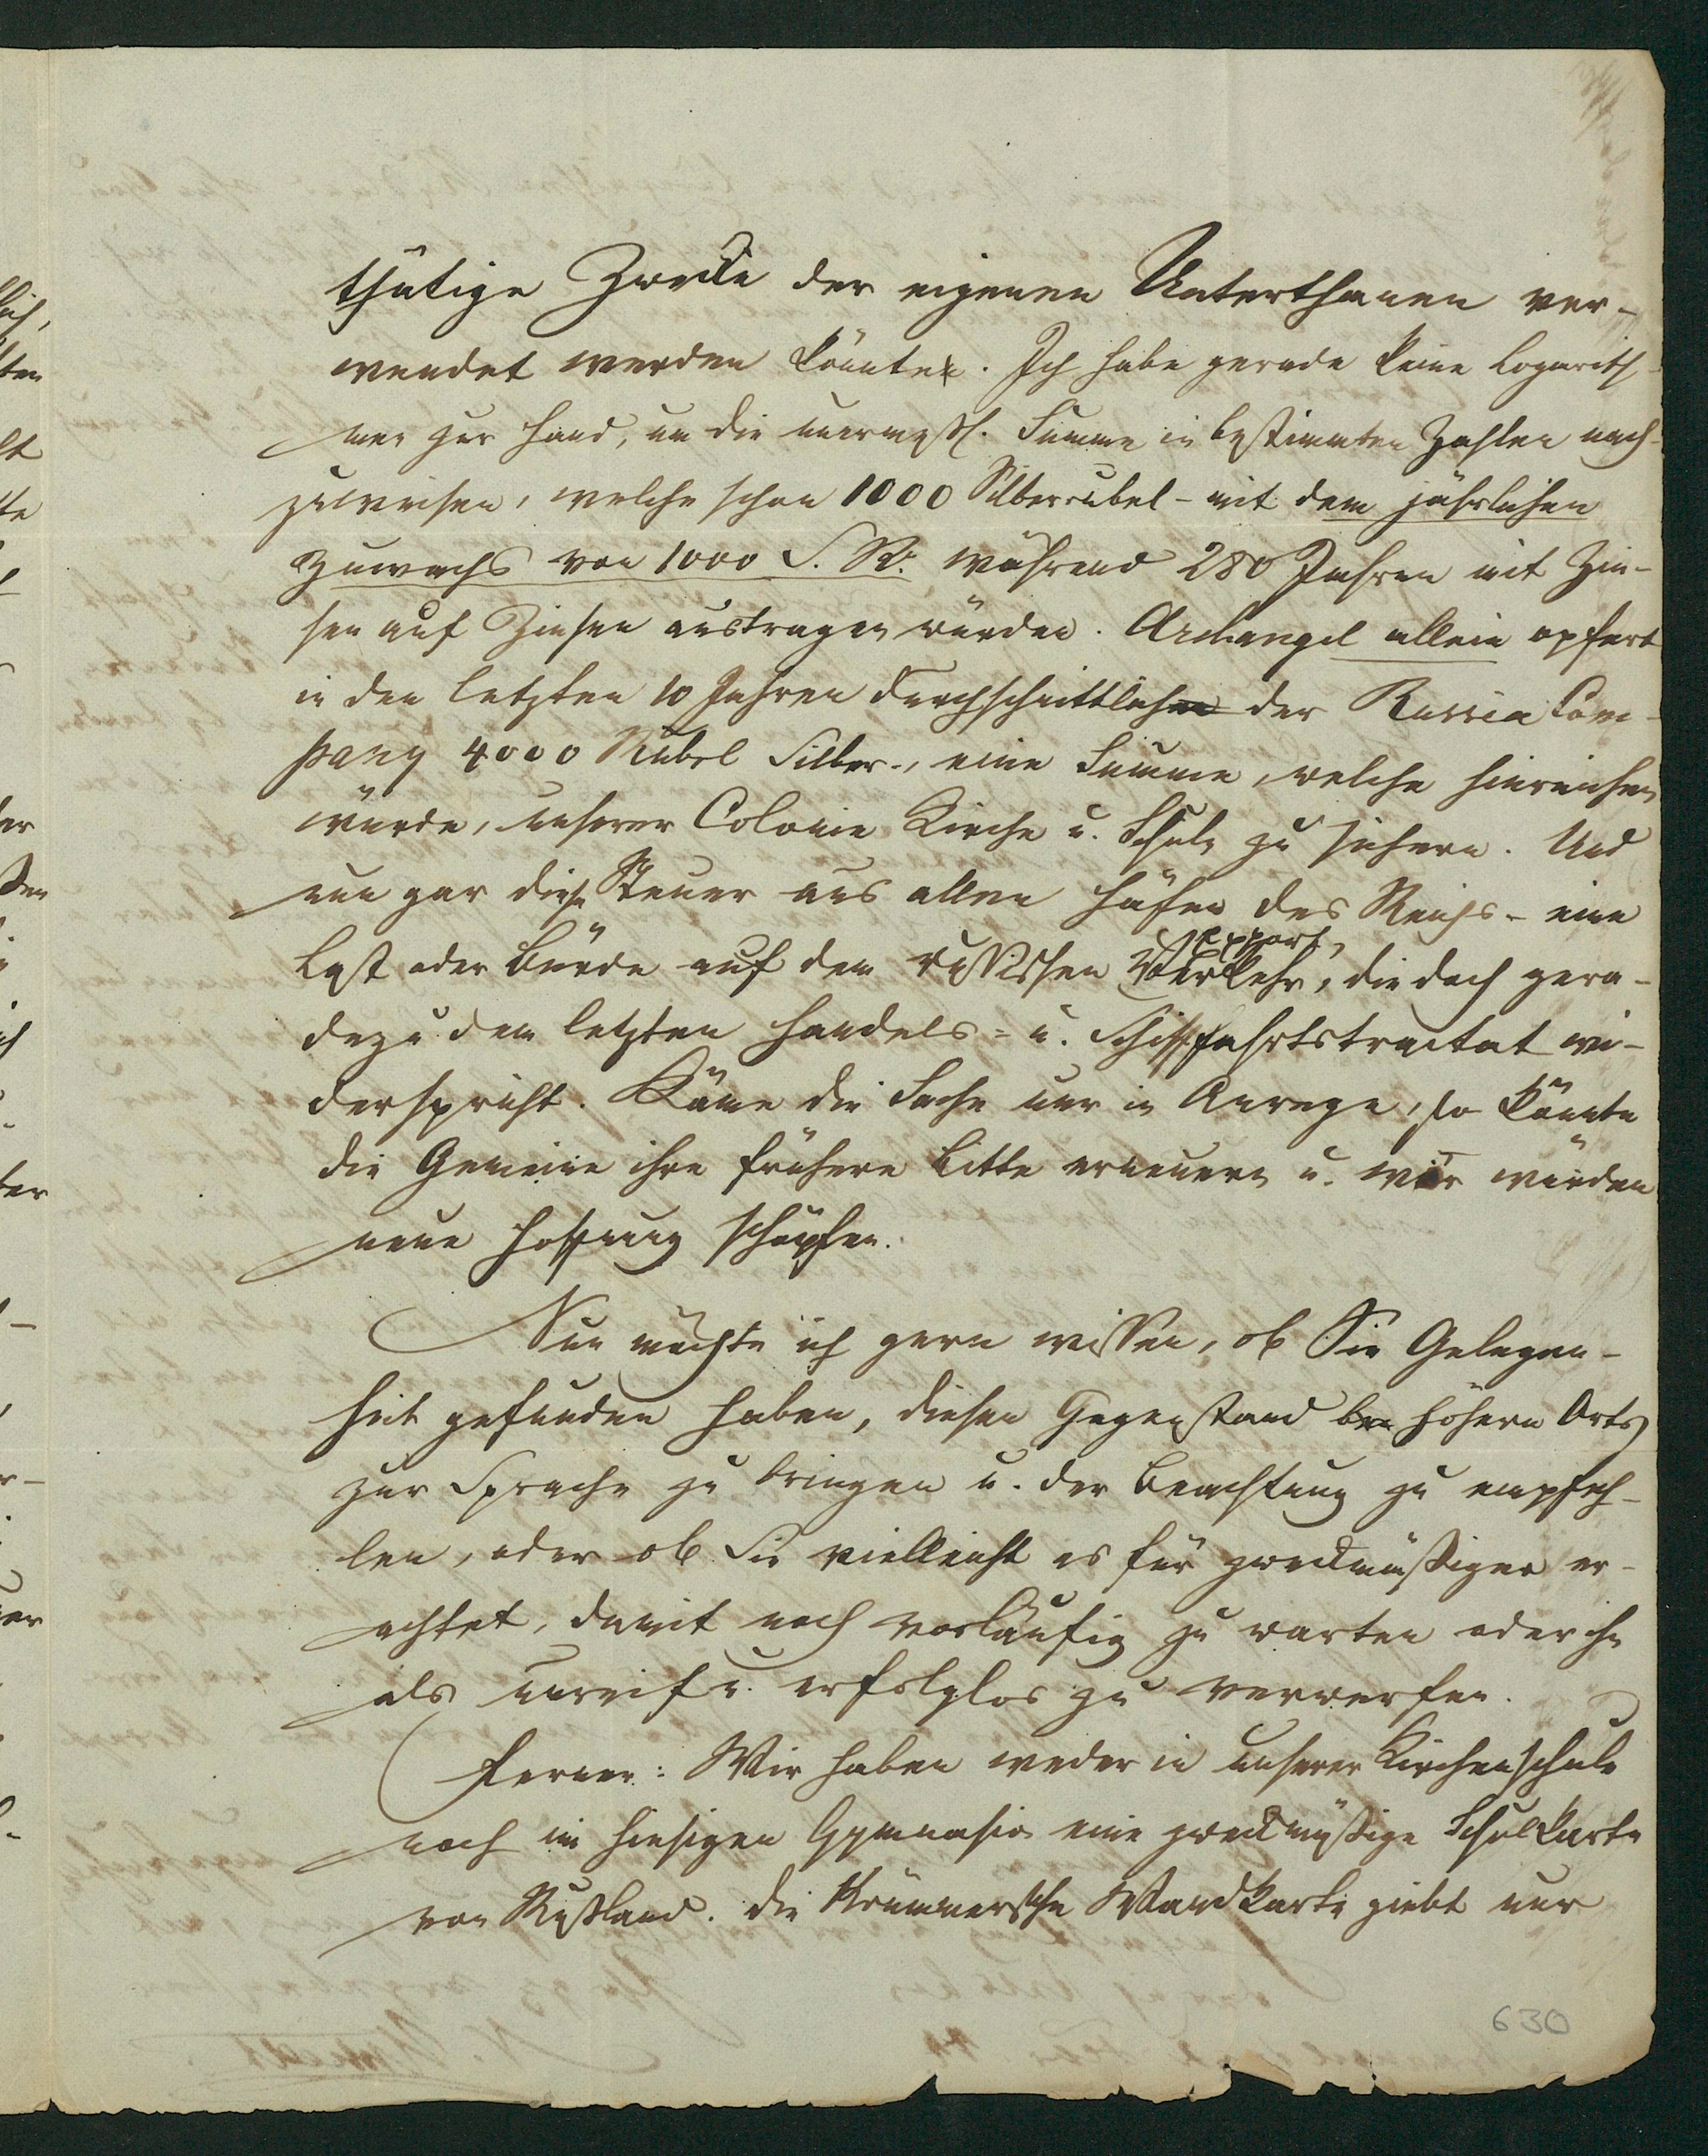 thätige Zwecke der eigenen Unterthanen ver-
wendet werden könnten. Ich habe gerade keine Logarith-
men zur Hand, um die unermeßl. Summe in bestimmten Zahlen nach-
zuweisen, welche schon 1000 Silberrubel - mit dem jährlichen
Zuwachs von 1000 S. R. während 280 Jahren mit Zin-
sen auf Zinsen austragen würden. Archangel allein opfert
in den letzten 10 Jahren durchschnittlich der Russia Com-
pany 4000 Rubel Silber, eine Summe, welche hinreichen
würde, unserer Colonie Kirche u. Schule zu sichern. Und
nun gar diese Steuer aus allen Häfen des Reichs - eine
Last oder Bürde auf dem russischen Verkehr,
Export,
die doch gera-
dezu dem letzten Handels- u. Schifffahrtstractat wi-
derspricht. Käme die Sache nur in Anrege, so könnte
die Gemeine ihre frühere Bitte erneuern u. wir würden
neue Hoffnung schöpfen.
Nun möchte ich gern wissen, ob Sie Gelegen-
heit gefunden haben, diesen Gegenstand höhern Orts
zur Sprache zu bringen u. der Beachtung zu empfeh-
len, oder ob Sie vielleicht es für zweckmäßiger er-
achtet, damit noch vorläufig zu warten oder ihn
als unreif u. erfolglos zu verwerfen.
Ferner: Wir haben weder in unserer Kirchenschule
noch im hiesigen Gymnasio eine zweckmäßige Schulkarte
von Rußland. Die Krümmersche Wandkarte giebt nur
630